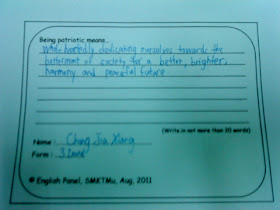 Being patriotic means...
whole-heartedly dedicating ourselves towards the
betterment of society for a better, brighter,
harmony and peaceful future
(Write in not more than 20 words)
Name : Ching Jia Xiang
Form :
© English Panel, SMKTMu, Aug, 2011